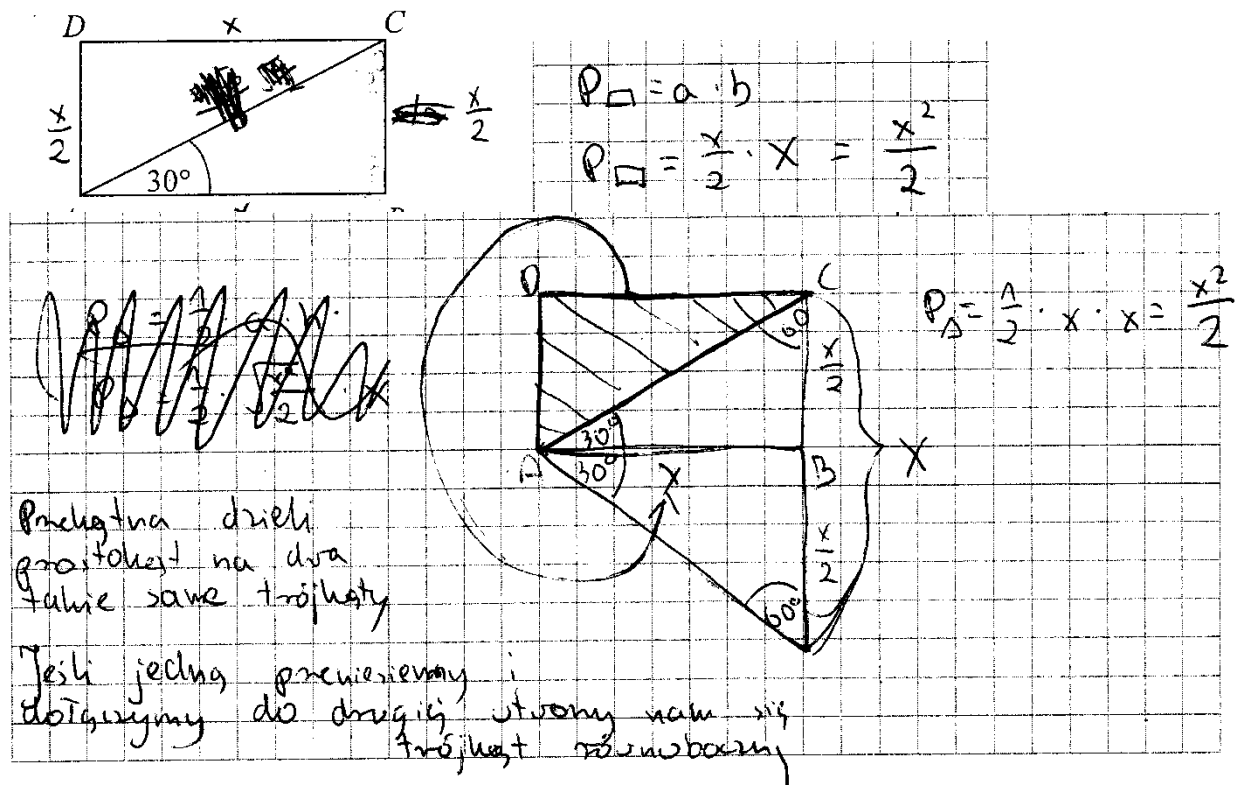 D x C
x/2 x/2
30°
P▭ = a · b
P▭ = x/2 · x = x²/2
D C
60
P△ = 1/2 · x · x = x²/2
x/2
30°
30°
A X B X
x/2
60°
Przekątna dzieli
prostokąt na dwa
takie same trójkąty
Jeśli jedną przeniesiemy i
dołączymy do drugiej utworzy nam się
trójkąt równoboczny